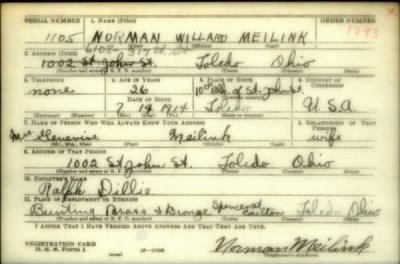 SERIAL NUMBER 1. NAME (Print) ORDER NUMBER
1105 NORMAN WILLARD MEILINK 1293
6108 - 317th St
2. ADDRESS (Print)
1002 St. John St. Toledo Ohio
(Number and street or R. F. D. number) (Town) (County) (State)
3. TELEPHONE 4. AGE IN YEARS 5. PLACE OF BIRTH 6. COUNTRY OF CITIZENSHIP
none 26 St. John St.
DATE OF BIRTH
7 19 1914 Toledo U.S.A
(Exchange) (Number) (Mo.) (Day) (Yr.) (State or country)
7. NAME OF PERSON WHO WILL ALWAYS KNOW YOUR ADDRESS 8. RELATIONSHIP OF THAT PERSON
Mrs Genevieve Meilink wife
(Mr., Mrs., Miss) (First) (Middle) (Last)
9. ADDRESS OF THAT PERSON
1002 St John St. Toledo Ohio
(Number and street or R. F. D. number) (Town) (County) (State)
10. EMPLOYER'S NAME
Ralph Dillie
11. PLACE OF EMPLOYMENT OR BUSINESS
Bunting Brass & Bronze Spencer at Carlton Toledo Ohio
(Number and street or R. F. D. number) (Town) (County) (State)
I AFFIRM THAT I HAVE VERIFIED ABOVE ANSWERS AND THAT THEY ARE TRUE.
REGISTRATION CARD
D. S. S. Form 1
Norman Meilink
(Registrant's signature)